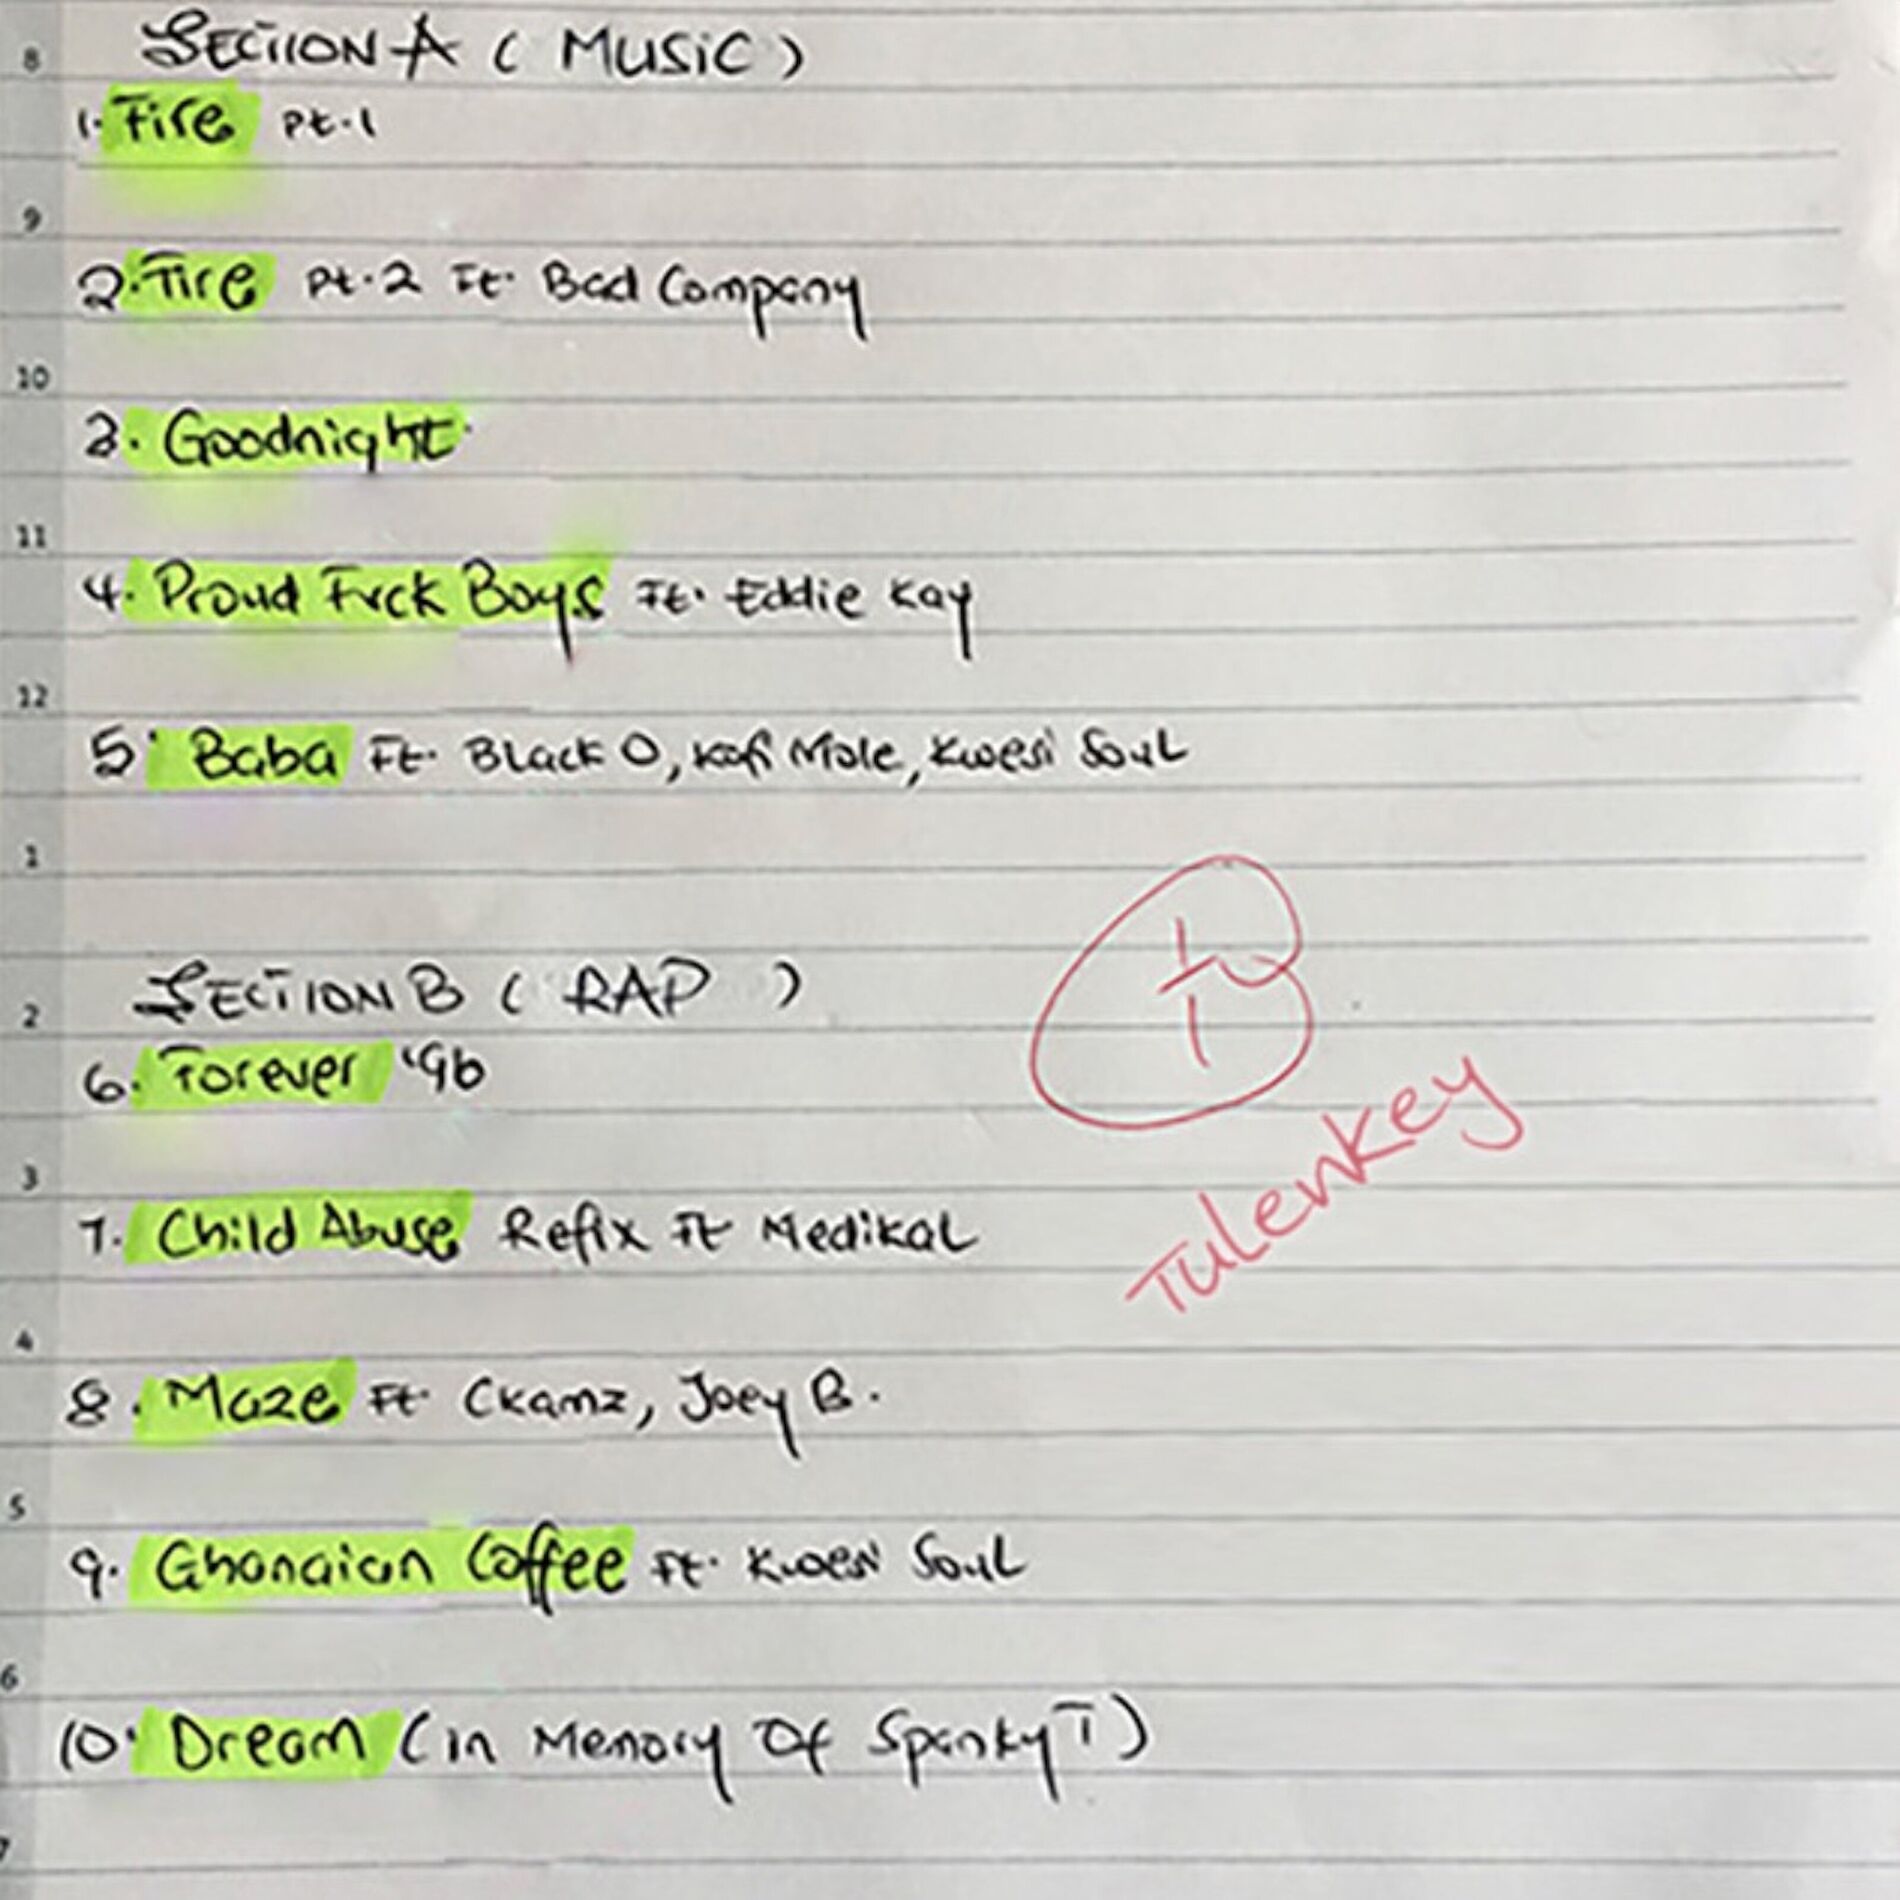 8
SECTION A ( MUSIC )
1. Fire Pt.1
9
2. Fire Pt.2 Ft. Bad Company
10
3. Goodnight
11
4. Proud Fvck Boys Ft. Eddie Kay
12
5. Baba Ft. Black O, Kofi Mole, Kwesi Soul
1
2
SECTION B ( RAP )
6. Forever '96
3
7. Child Abuse Refix Ft Medikal
4
8. Maze Ft Ckamz, Joey B.
5
9. Ghanaian Coffee Ft. Kwesi Soul
6
10. Dream (in Memory Of Spanky T)
7
1
1
Tulenkey